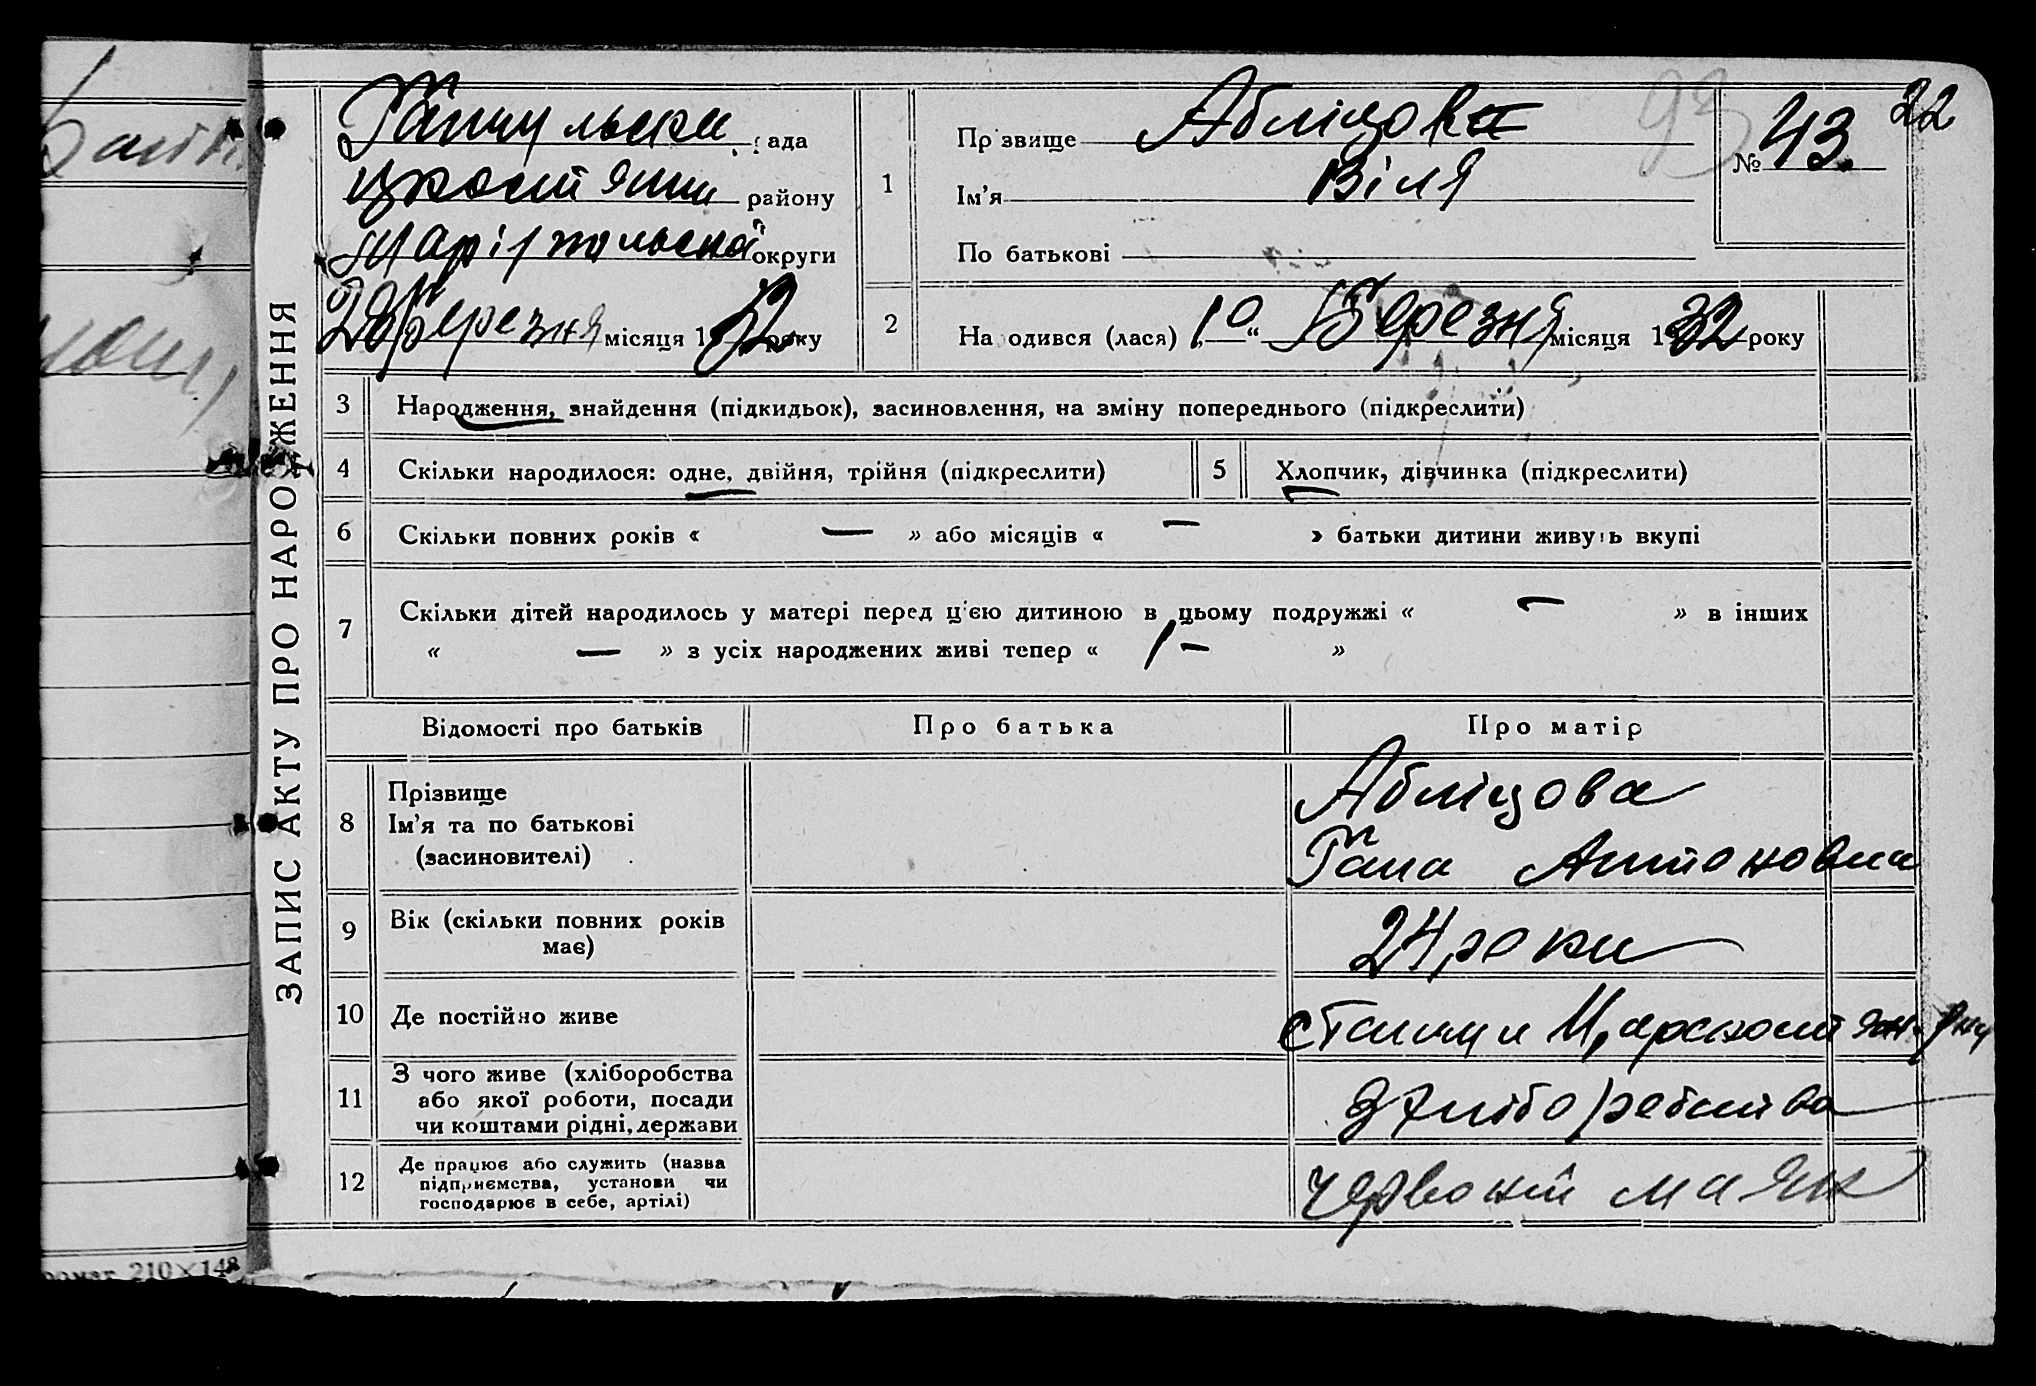 ЗАПИС АКТУ ПРО НАРОДЖЕННЯ
рада
району
Маріупольської округи
28 березня місяця 1932 року
1
Прізвище Абліцова
Ім'я Віля
По батькові
№ 43.
32
93
2
Народився (лася) „10“ Березня місяця 1932 року
3 Народження, знайдення (підкидьок), засиновлення, на зміну попереднього (підкреслити)
4 Скільки народилося: одне, двійня, трійня (підкреслити)
5 Хлопчик, дівчинка (підкреслити)
6 Скільки повних років « — » або місяців « — » батьки дитини живуть вкупі
7 Скільки дітей народилось у матері перед цією дитиною в цьому подружжі « — » в інших
« — » з усіх народжених живі тепер « 1 — »
Відомості про батьків Про батька Про матір
8 Прізвище
Ім'я та по батькові
(засиновителі)
Абліцова
Гана Антоновна
9 Вік (скільки повних років
має)
24 роки
10 Де постійно живе
11 З чого живе (хліборобства
або якої роботи, посади
чи коштами рідні, держави
з хліборобства
12 Де працює або служить (назва
підприємства, установи чи
господарює в себе, артілі)
червоний маяк
210×148